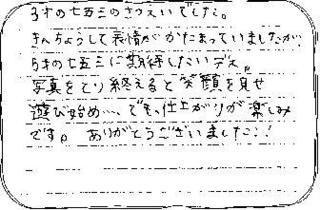 3才の七五三のさつえいでした。
きんちょうして表情がかたまっていましたが、
5才の七五三に期待したいデス。
写真をとり終えると笑顔を見せ
遊び始め… でも、仕上がりが楽しみ
です。 ありがとうございました!!